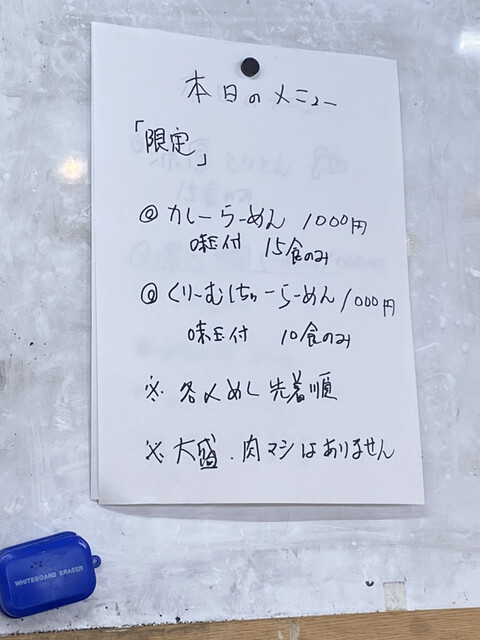 本日のメニュー
「限定」
◎ カレーらーめん 1000円
味玉付 15食のみ
◎ くりーむしちゅーらーめん 1000円
味玉付 10食のみ
※ 各〆めし先着順
※ 大盛.肉マシはありません
WHITEBOARD ERASER